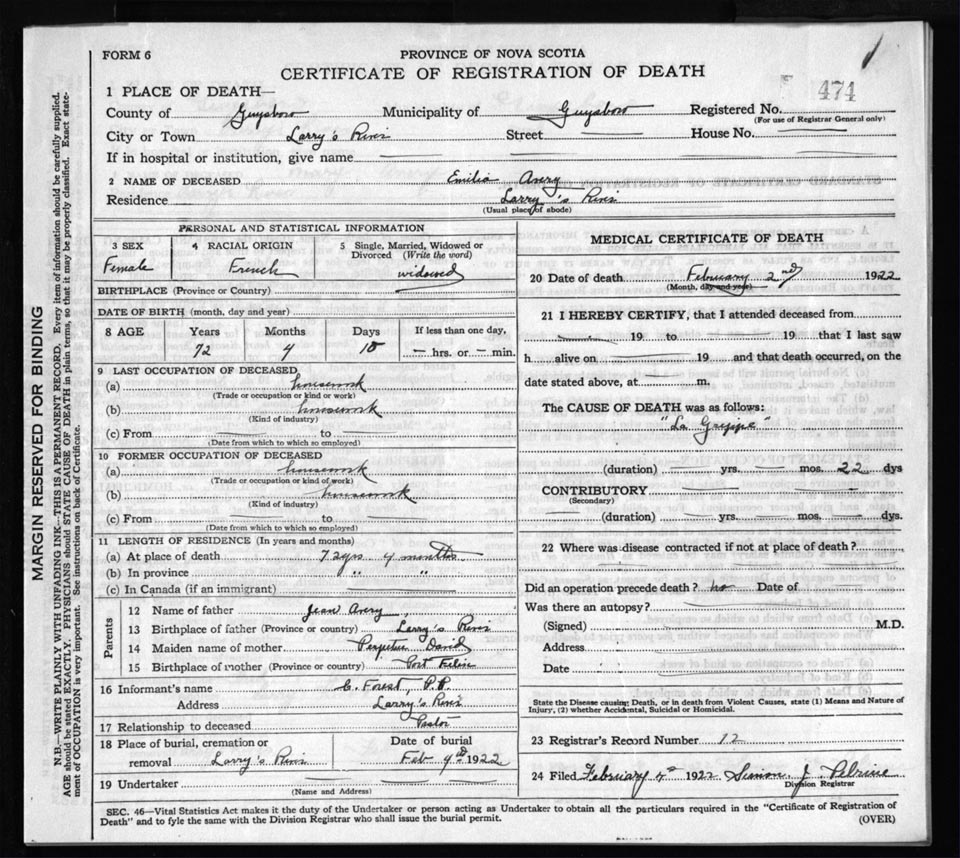 FORM 6
PROVINCE OF NOVA SCOTIA
CERTIFICATE OF REGISTRATION OF DEATH
474
1 PLACE OF DEATH—
County of Guysboro Municipality of Guysboro Registered No.
(For use of Registrar General only)
City or Town Larry's River Street House No.
If in hospital or institution, give name
2 NAME OF DECEASED Emilie Avery
Residence Larry's River
(Usual place of abode)
PERSONAL AND STATISTICAL INFORMATION
3 SEX Female
4 RACIAL ORIGIN French
5 Single, Married, Widowed or Divorced (Write the word) widowed
BIRTHPLACE (Province or Country)
DATE OF BIRTH (month, day and year)
8 AGE Years Months Days If less than one day,
72 4 18 — hrs. or — min.
9 LAST OCCUPATION OF DECEASED
(a) housework
(Trade or occupation or kind or work)
(b) housework
(Kind of industry)
(c) From to
(Date from which to which so employed)
10 FORMER OCCUPATION OF DECEASED
(a) housework
(Trade or occupation or kind of work)
(b) housework
(Kind of industry)
(c) From to
(Date from which to which so employed)
11 LENGTH OF RESIDENCE (In years and months)
(a) At place of death 72 yrs 4 months
(b) In province " "
(c) In Canada (if an immigrant)
Parents
12 Name of father Jean Avery
13 Birthplace of father (Province or country) Larry's River
14 Maiden name of mother Perpetue David
15 Birthplace of mother (Province or country) Port Felix
16 Informant's name C. Forest, P.P.
Address Larry's River
17 Relationship to deceased Pastor
18 Place of burial, cremation or removal Larry's River
Date of burial Feb 4th 1922
19 Undertaker
(Name and Address)
MEDICAL CERTIFICATE OF DEATH
20 Date of death February 2nd 1922
(Month, day and year)
21 I HEREBY CERTIFY, that I attended deceased from
19 to 19 that I last saw
h alive on 19 and that death occurred, on the
date stated above, at m.
The CAUSE OF DEATH was as follows:
"La Grippe"
(duration) yrs. mos. 22 dys
CONTRIBUTORY
(Secondary)
(duration) yrs. mos. dys.
22 Where was disease contracted if not at place of death?
Did an operation precede death? no Date of
Was there an autopsy?
(Signed) M.D.
Address
Date
State the Disease causing Death, or in death from Violent Causes, state (1) Means and Nature of
Injury, (2) whether Accidental, Suicidal or Homicidal.
23 Registrar's Record Number 12
24 Filed February 4th 1922 Simon J. Pelrine
Division Registrar
SEC. 46—Vital Statistics Act makes it the duty of the Undertaker or person acting as Undertaker to obtain all the particulars required in the "Certificate of Registration of
Death" and to fyle the same with the Division Registrar who shall issue the burial permit.
(OVER)
MARGIN RESERVED FOR BINDING
N.B.—WRITE PLAINLY WITH UNFADING INK—THIS IS A PERMANENT RECORD. Every item of information should be carefully supplied.
AGE should be stated EXACTLY. PHYSICIANS should STATE CAUSE OF DEATH in plain terms, so that it may be properly classified. Exact state-
ment of OCCUPATION is very important. See instructions on back of Certificate.